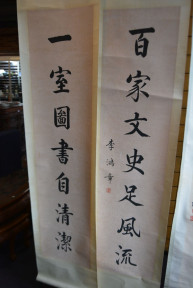 百家文史足風流
一室圖書自清潔
李鴻章